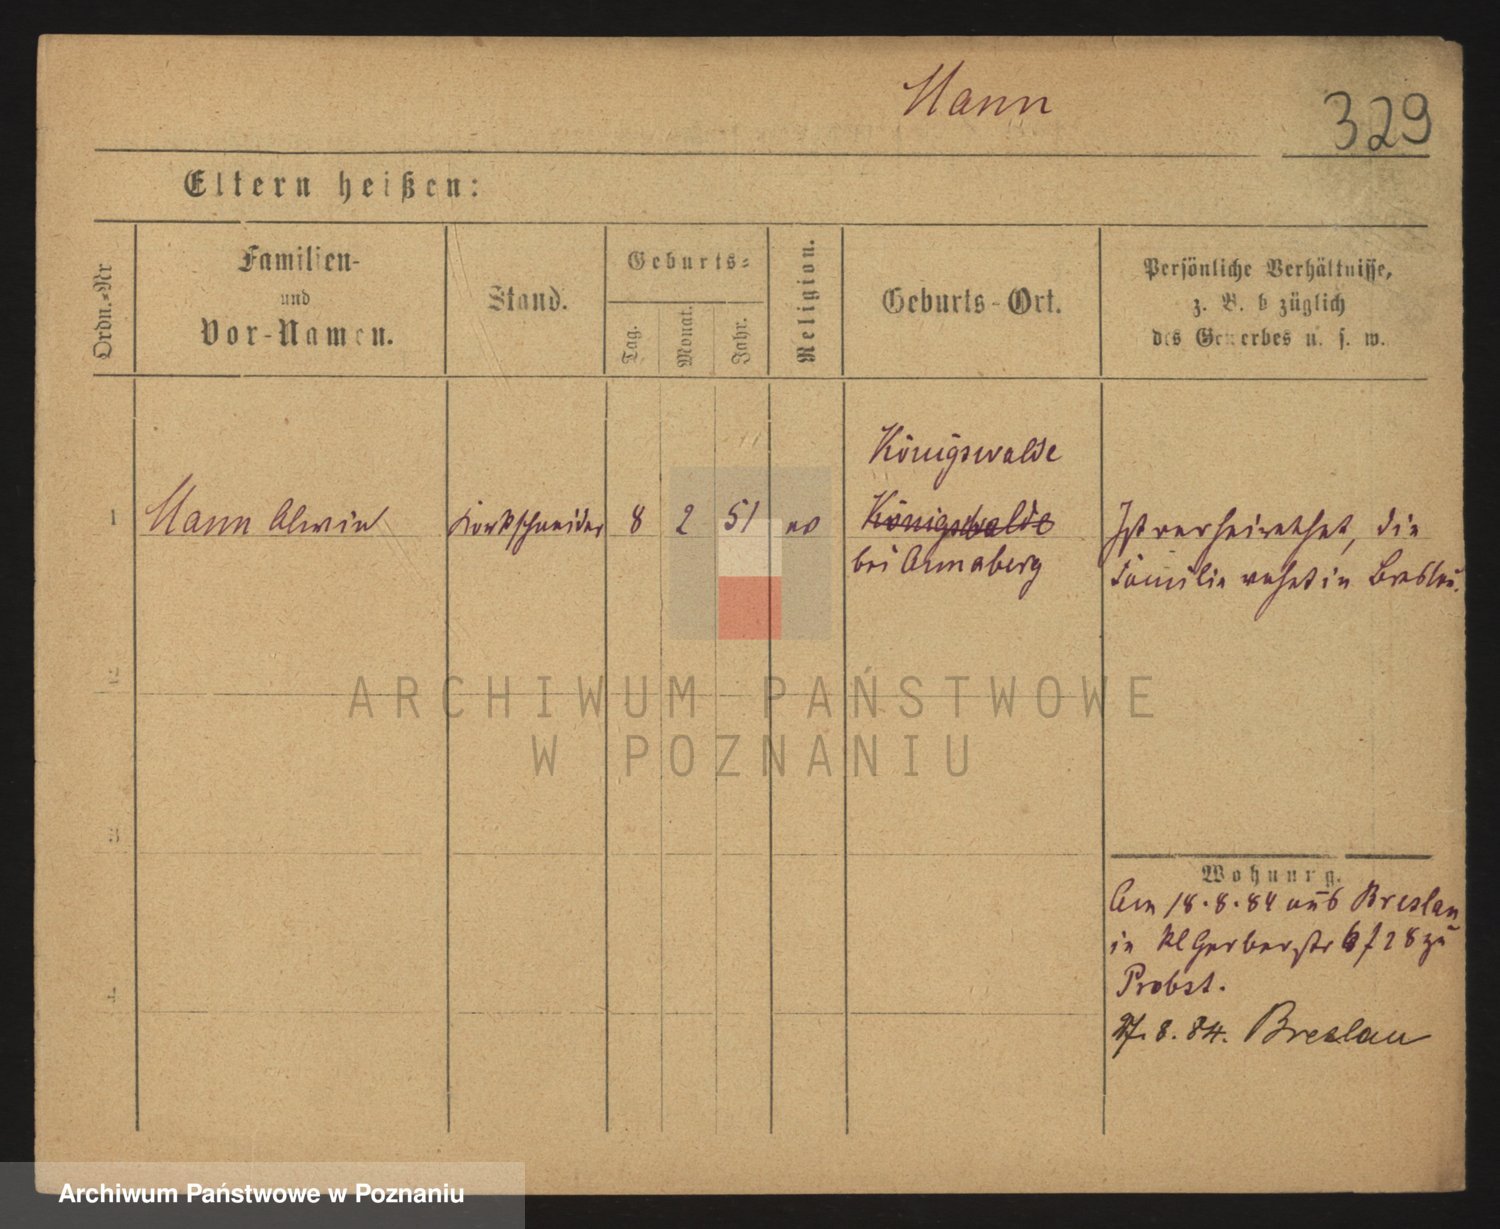 Mann
329
Eltern heißen:
Ordn.=Nr
Familien-
und
Vor-Namen.
Stand.
Geburts=
Tag.
Monat.
Jahr.
Religion.
Geburts-Ort.
Persönliche Verhältnisse,
z. B. b züglich
des Gewerbes u. s. w.
Königswalde
1 Mann Alwin Korkschneider 8 2 51 ev Königswalde Ist verheirathet, die
bei Annaberg Familie wohnt in Breslau.
2
3
4
Wohnung.
Am 18.8.84 aus Breslau
in Kl Gerberstr 728 zu
Probst.
27.8.84. Breslau
ARCHIWUM PAŃSTWOWE
W POZNANIU
Archiwum Państwowe w Poznaniu